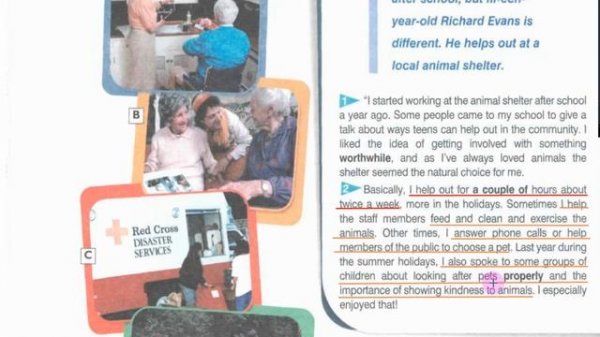 after school, but fifteen-
year-old Richard Evans is
different. He helps out at a
local animal shelter.
1 "I started working at the animal shelter after school
a year ago. Some people came to my school to give a
talk about ways teens can help out in the community. I
liked the idea of getting involved with something
worthwhile, and as I've always loved animals the
shelter seemed the natural choice for me.
2 Basically, I help out for a couple of hours about
twice a week, more in the holidays. Sometimes I help
the staff members feed and clean and exercise the
animals. Other times, I answer phone calls or help
members of the public to choose a pet. Last year during
the summer holidays, I also spoke to some groups of
children about looking after pets properly and the
importance of showing kindness to animals. I especially
enjoyed that!
B
Red Cross
DISASTER
SERVICES
C